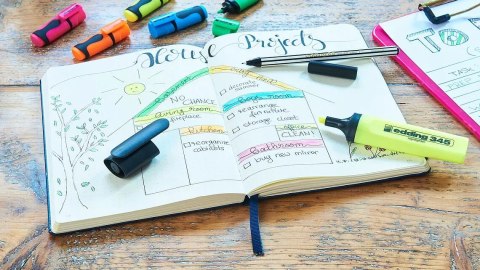 House Projects
NO CHANGE
living room
fireplace
kitchen
reorganize
cabinets
decorate
boy's room
rearrange
furniture
storage closet
office
CLEAN!
bathroom
buy new mirror
edding 345
TO
TASK